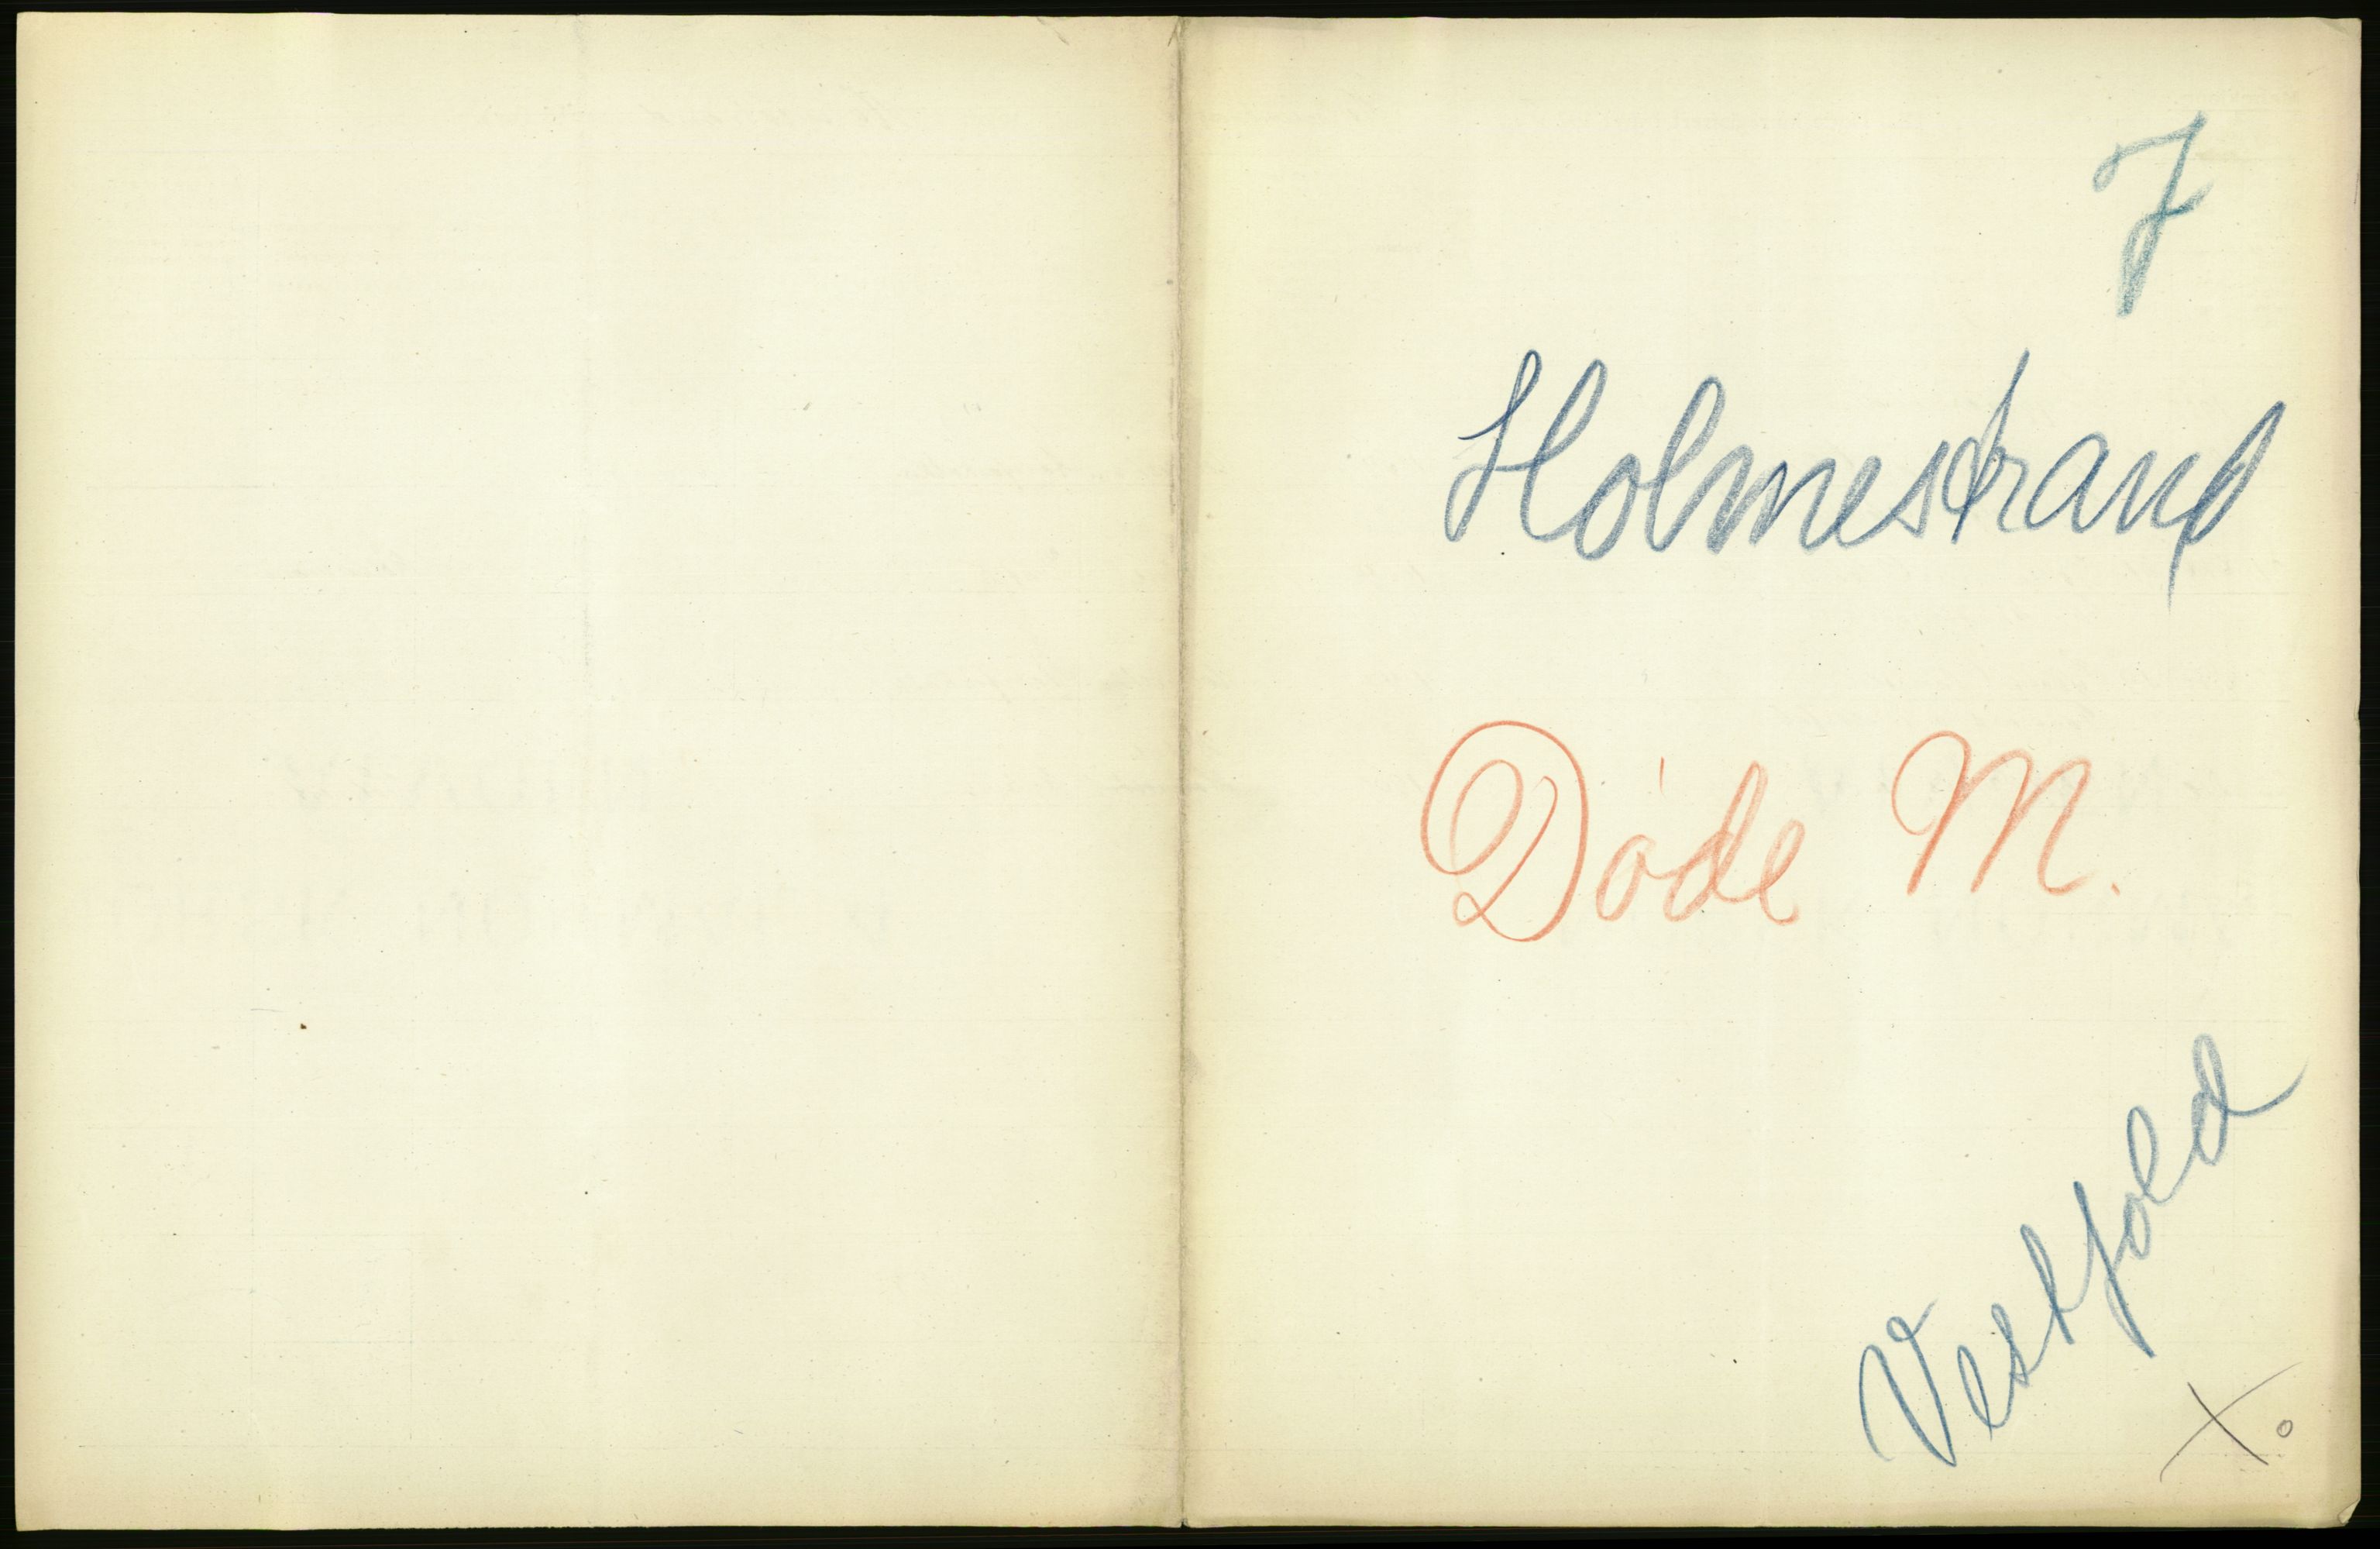 7
Holmestrand
Døde M.
Vestfold
X.